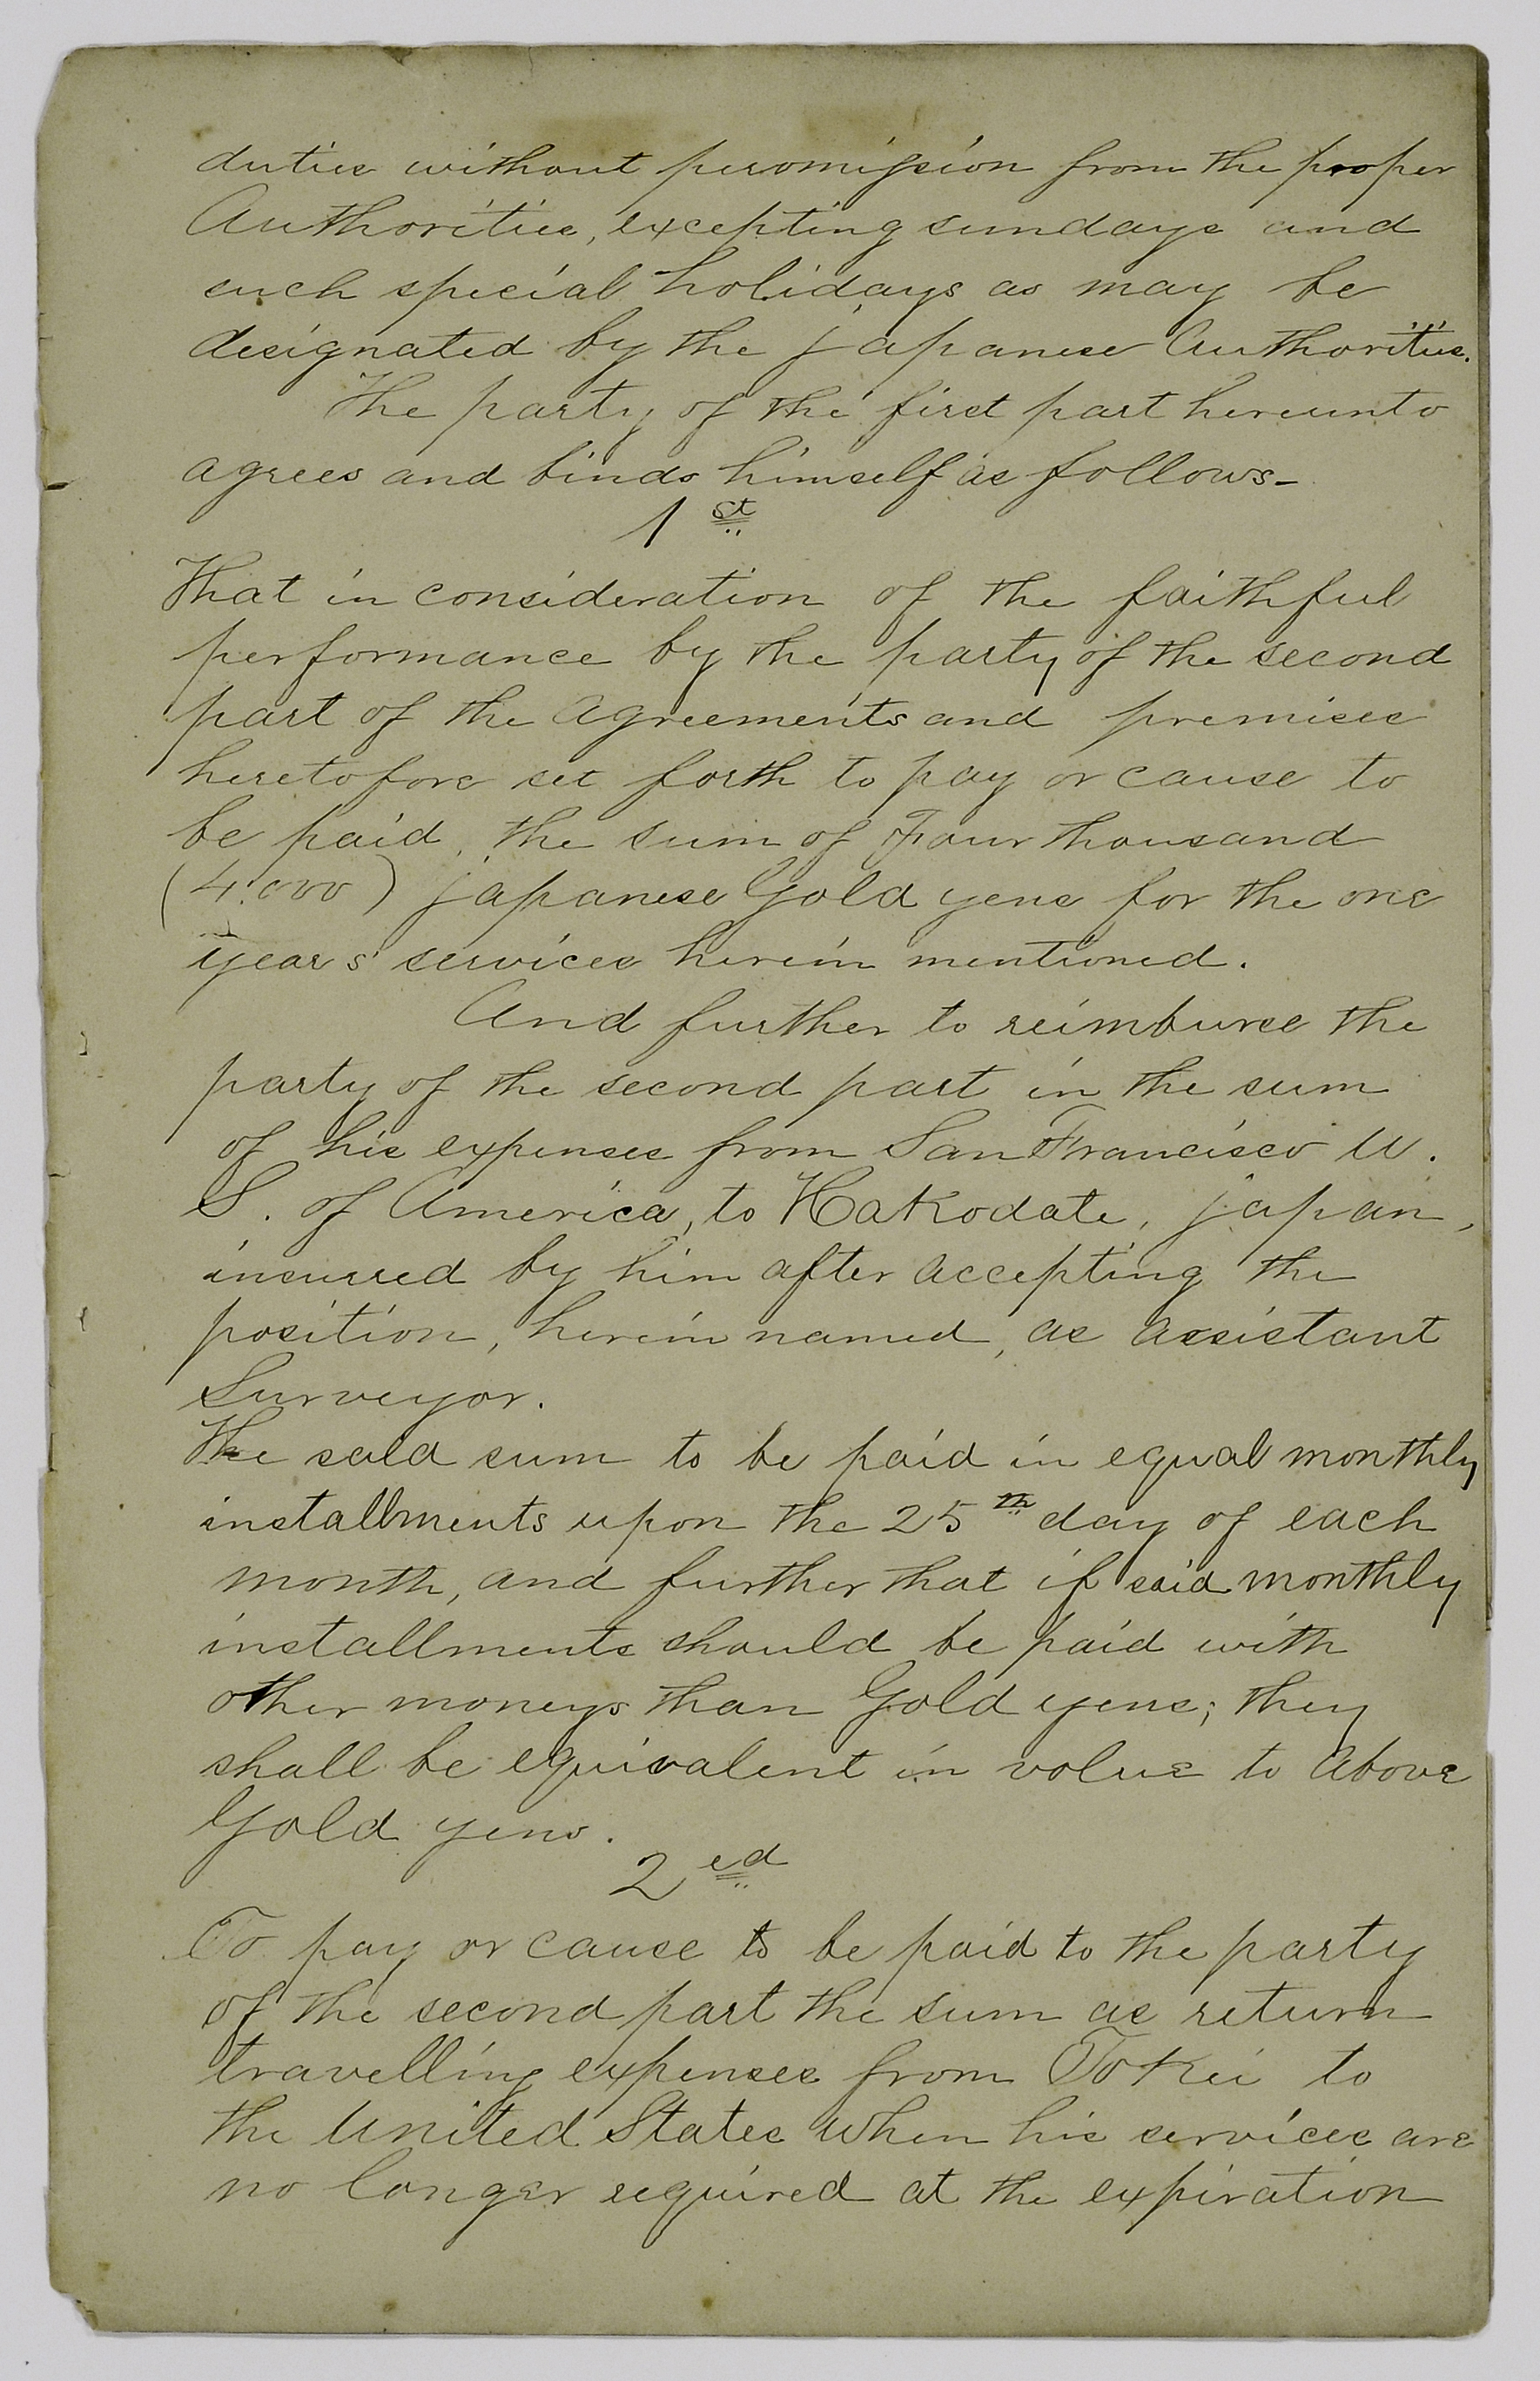 duties without peromission from the proper
Authorities, excepting sundays and
such special holidays as may be
designated by the japanese Authorities.
The party of the first part hereunto
agrees and binds himself as follows-
1st
That in consideration of the faithful
performance by the party of the second
part of the Agreements and premises
heretofore set forth to pay or cause to
be paid, the sum of Four thousand
(4.000) japanese Gold yens for the one
years' services herein mentioned.
And further to reimburse the
party of the second part in the sum
of his expenses from San Francisco U.
S. of America, to Hakodate, japan,
incurred by him after accepting the
position, herein named, as assistant
Surveyor.
The said sum to be paid in equal monthly
installments upon the 25th day of each
month, and further that if said monthly
installments should be paid with
other moneys than Gold yens; they
shall be equivalent in value to above
Gold yens.
2ed
To pay or cause to be paid to the party
of the second part the sum as return
travelling expenses from Tokei to
the United States when his services are
no longer required at the expiration